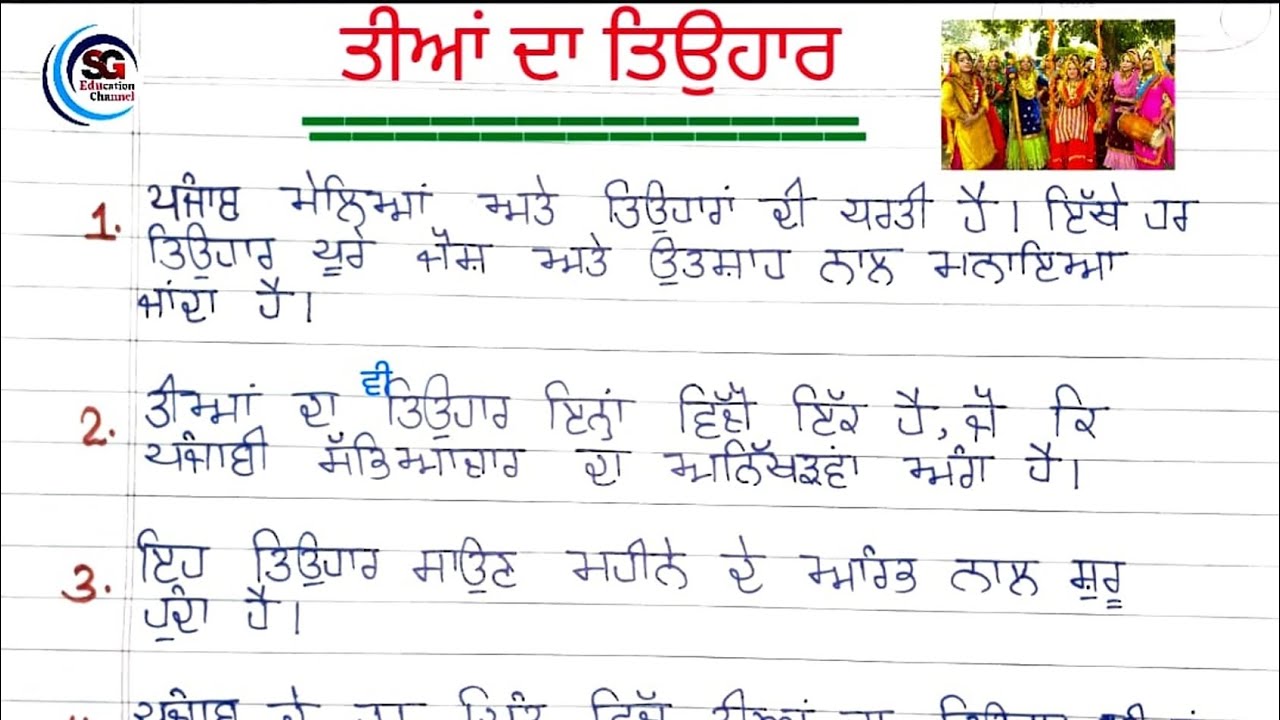 SG
Education
Channel
ਤੀਆਂ ਦਾ ਤਿਉਹਾਰ
1. ਪੰਜਾਬ ਮੇਲਿਆਂ ਅਤੇ ਤਿਉਹਾਰਾਂ ਦੀ ਧਰਤੀ ਹੈ। ਇੱਥੇ ਹਰ
ਤਿਉਹਾਰ ਪੂਰੇ ਜੋਸ਼ ਅਤੇ ਉਤਸ਼ਾਹ ਨਾਲ ਮਨਾਇਆ
ਜਾਂਦਾ ਹੈ।
2. ਤੀਆਂ ਦਾ ਵੀ ਤਿਉਹਾਰ ਇਨ੍ਹਾਂ ਵਿੱਚੋਂ ਇੱਕ ਹੈ, ਜੋ ਕਿ
ਪੰਜਾਬੀ ਸੱਭਿਆਚਾਰ ਦਾ ਅਨਿੱਖੜਵਾਂ ਅੰਗ ਹੈ।
3. ਇਹ ਤਿਉਹਾਰ ਸਾਉਣ ਮਹੀਨੇ ਦੇ ਆਰੰਭ ਨਾਲ ਸ਼ੁਰੂ
ਹੁੰਦਾ ਹੈ।
ਪੰਜਾਬ ਦੇ ਹਰ ਪਿੰਡ ਵਿੱਚ ਤੀਆਂ ਦਾ ਤਿਉਹਾਰ